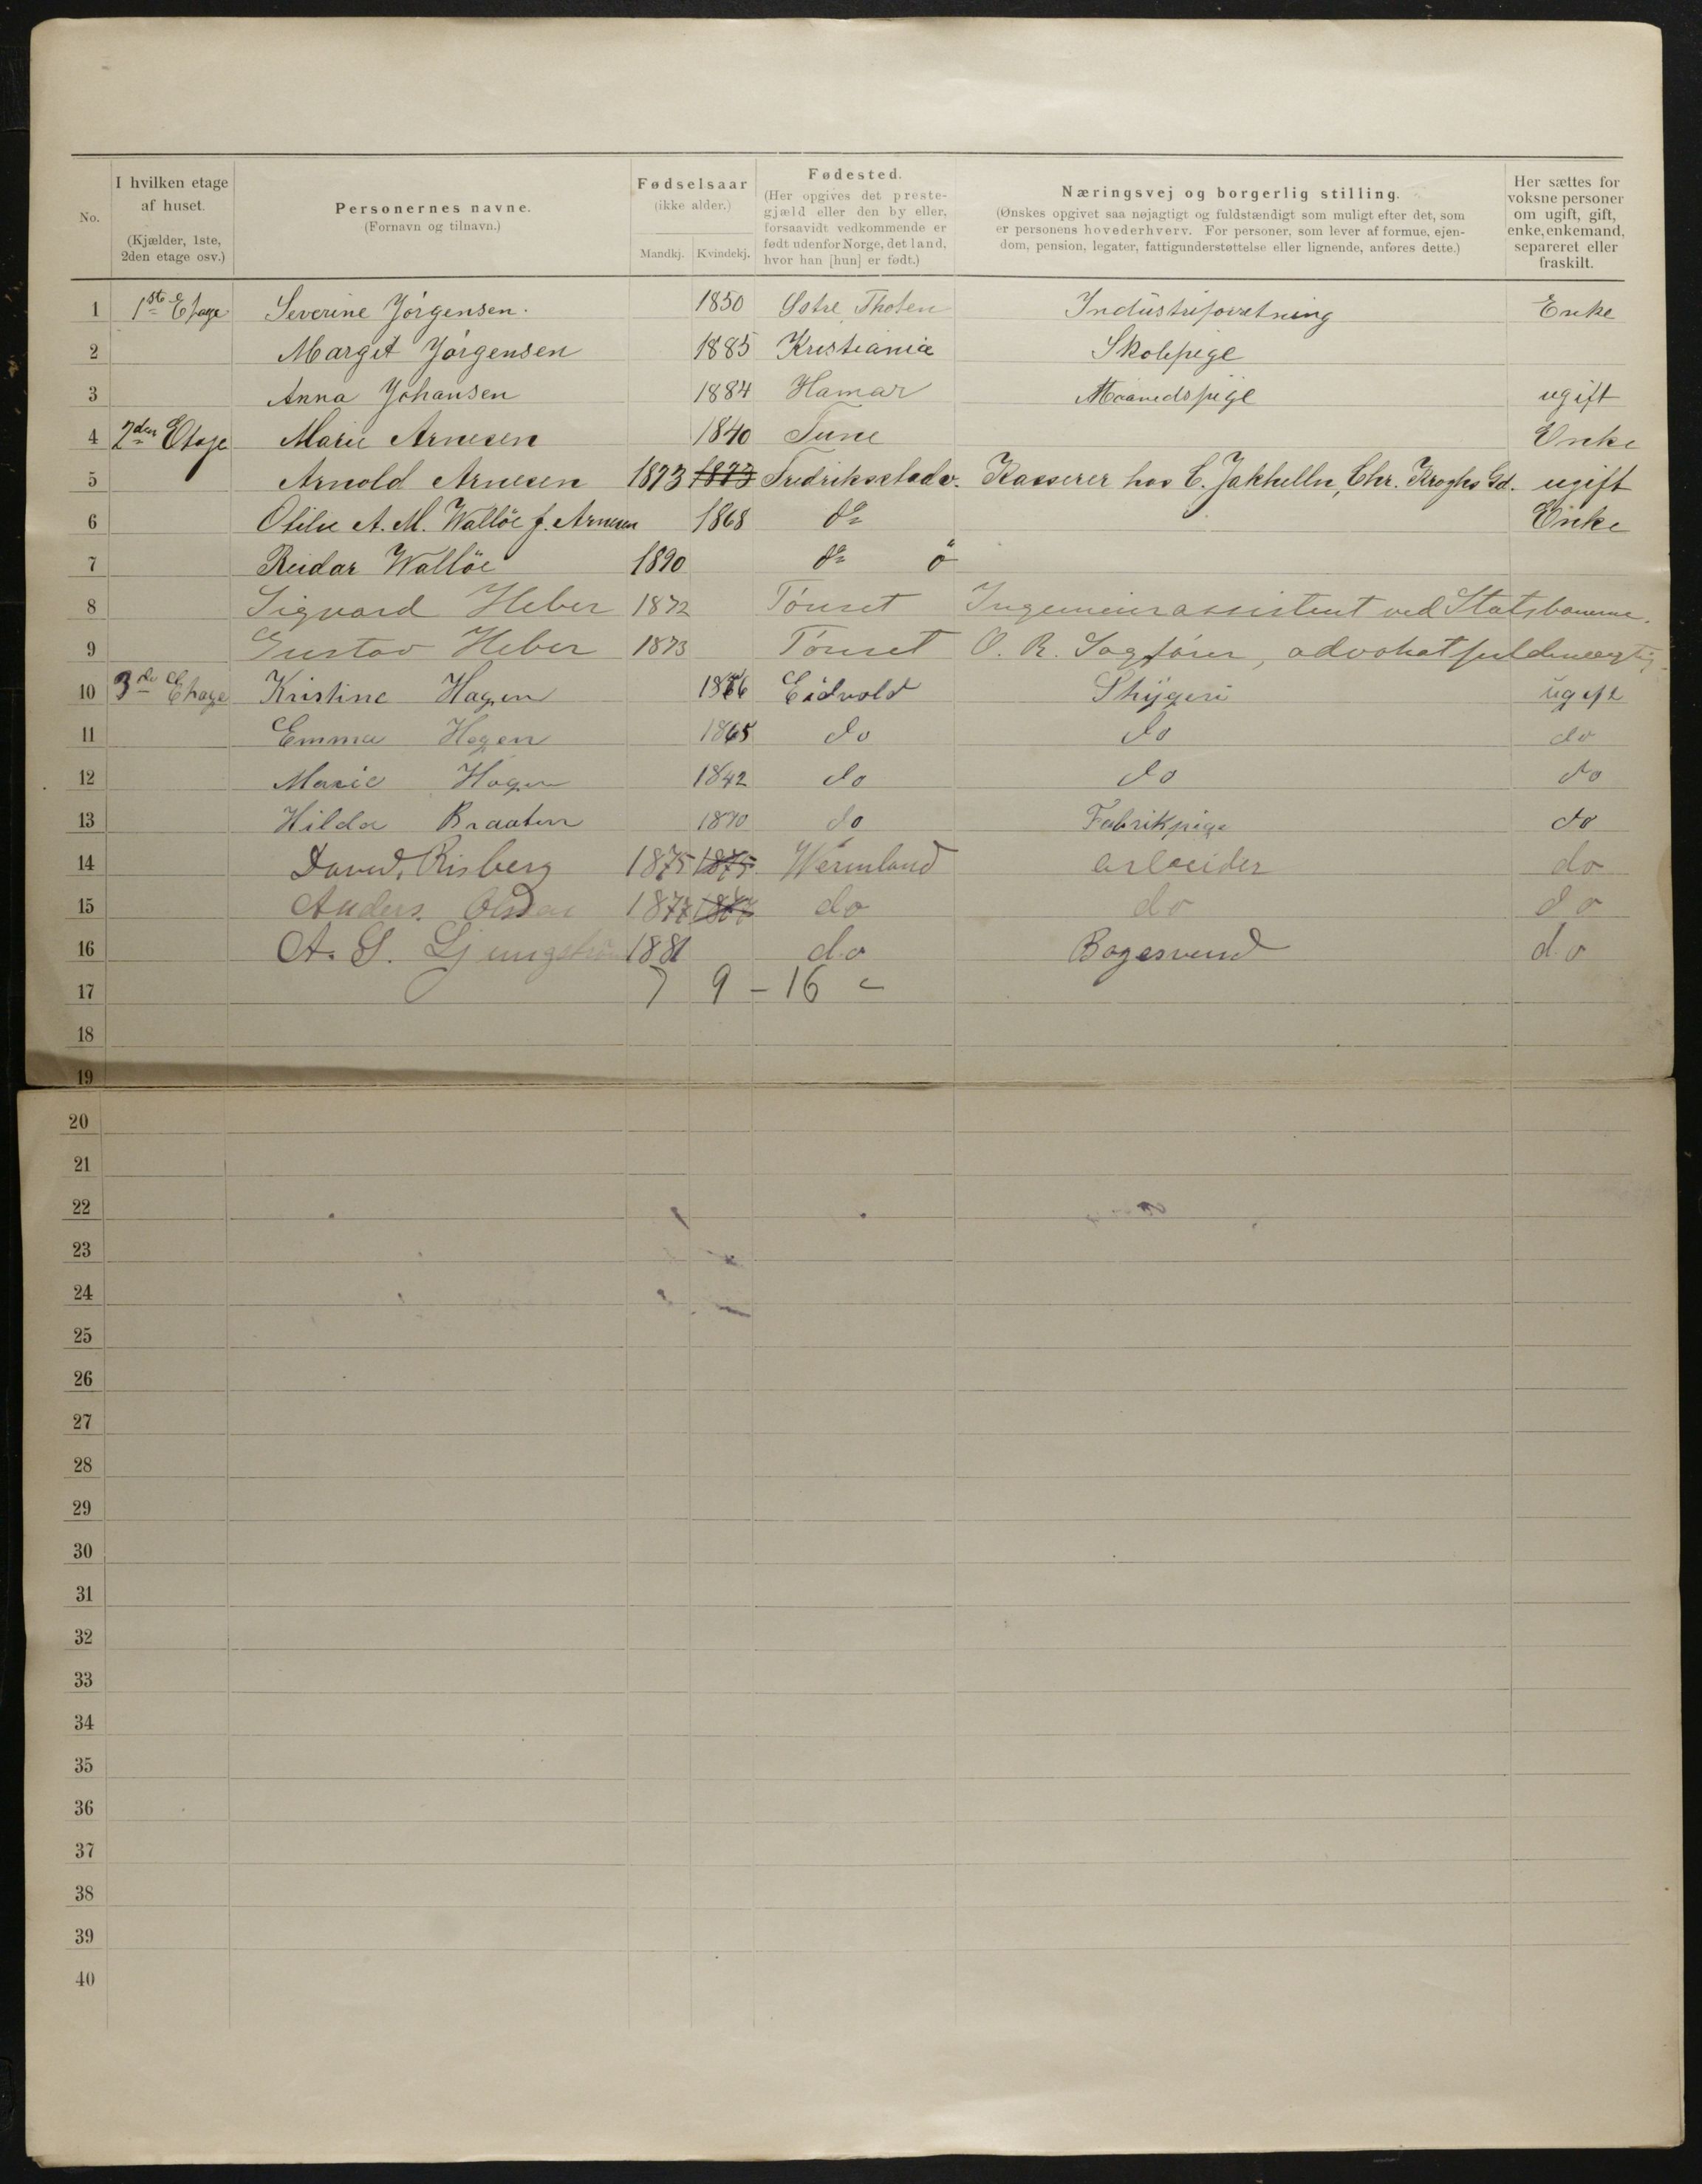 No. I hvilken etage af huset. (Kjælder, 1ste, 2den etage osv.) Personernes navne. (Fornavn og tilnavn.) Fødselsaar (ikke alder.) Mandkj. Kvindekj. Fødested. (Her opgives det prestegjæld eller den by eller, forsaavidt vedkommende er født udenfor Norge, det land, hvor han [hun] er født.) Næringsvej og borgerlig stilling. (Ønskes opgivet saa nøjagtigt og fuldstændigt som muligt efter det, som er personens hovederhverv. For personer, som lever af formue, ejendom, pension, legater, fattigunderstøttelse eller lignende, anføres dette.) Her sættes for voksne personer om ugift, gift, enke, enkemand, separeret eller fraskilt.
1 1ste Etage Severine Jørgensen. 1850 Østre Thoten Industriforretning Enke
2 Margit Jørgensen 1885 Kristiania Skolepige
3 Anna Johansen 1884 Hamar Maanedspige ugift
4 2den Etage Marie Arnesen 1840 Tune Enke
5 Arnold Arnesen 1873 1873 Fredriksstad v. Kasserer hos C. Jakhelln, Chr. Kroghs Gd. ugift
6 Otilie A. M. Walløe f. Arnesen 1868 do Enke
7 Reidar Walløe 1890 do ö
8 Sigvard Heber 1872 Tønset Ingeniørassistent ved Statsbanerne.
9 Gustav Heber 1873 Tønset O. R. Sagfører, advokatfuldmægtig.
10 3die Etage Kristine Hagen 1866 Eidvold Skygeri ugift
11 Emma Hagen 1865 do do do
12 Marie Hagen 1842 do do do
13 Hilda Braaten 1870 do Fabrikpige do
14 David Risberg 1875 1875 Wermland arbeider do
15 Anders 1877 do do do
16 A. S. Ljungström 1881 do Bogesvend do
17 7 9 - 16
18
19
20
21
22
23
24
25
26
27
28
29
30
31
32
33
34
35
36
37
38
39
40